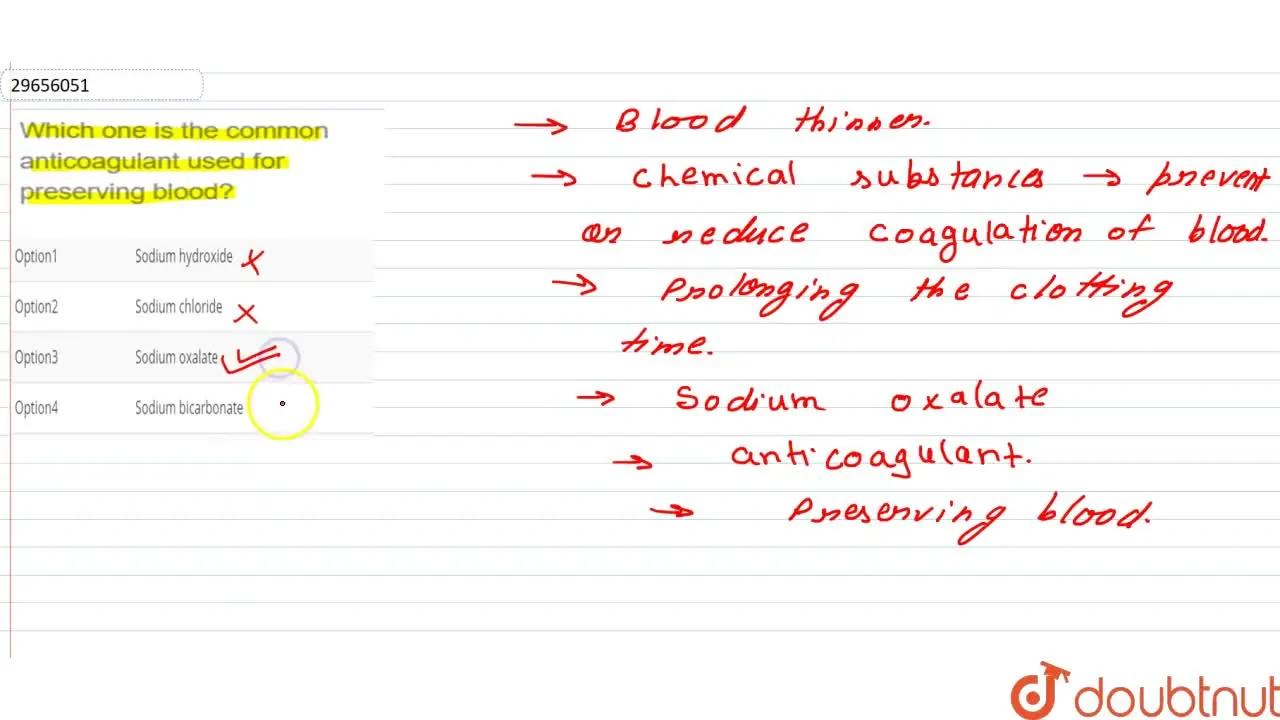 29656051
Which one is the common
anticoagulant used for
preserving blood?
Option1 Sodium hydroxide
Option2 Sodium chloride
Option3 Sodium oxalate
Option4 Sodium bicarbonate
→ Blood thinner.
→ chemical substances → prevent
or reduce coagulation of blood.
→ Prolonging the clotting
time.
→ Sodium oxalate
→ anticoagulant.
→ Preserving blood.
doubtnut